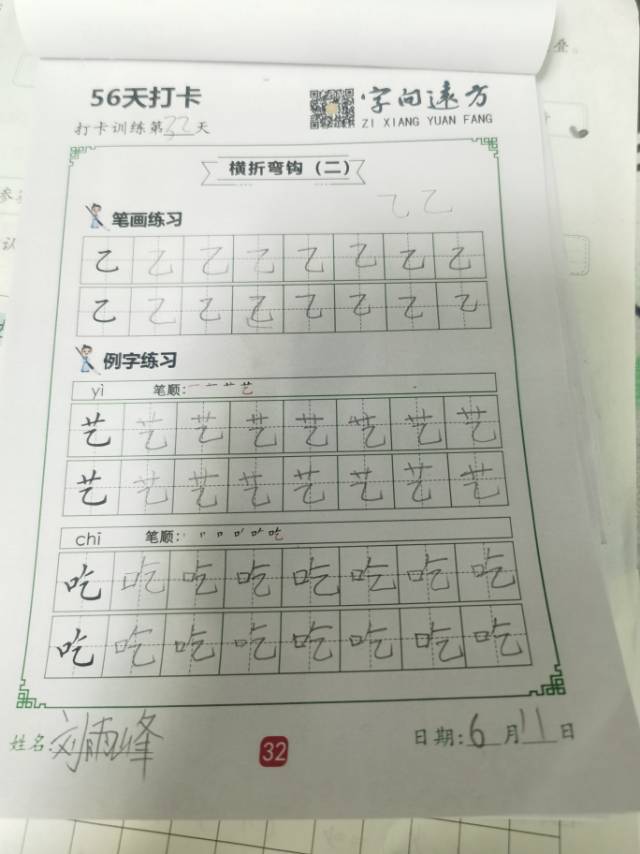 56天打卡
字向远方
打卡训练第32天
ZI XIANG YUAN FANG
横折弯钩（二）
乙乙
笔画练习
乙乙乙乙乙乙乙乙
乙乙乙乙乙乙乙乙
例字练习
yì 笔顺：一 十 艹 艺
艺艺艺艺艺艺艺艺
艺艺艺艺艺艺艺艺
chī 笔顺：
吃吃吃吃吃吃吃吃
吃吃吃吃吃吃吃吃
姓名：刘雨峰
32
日期：6月11日